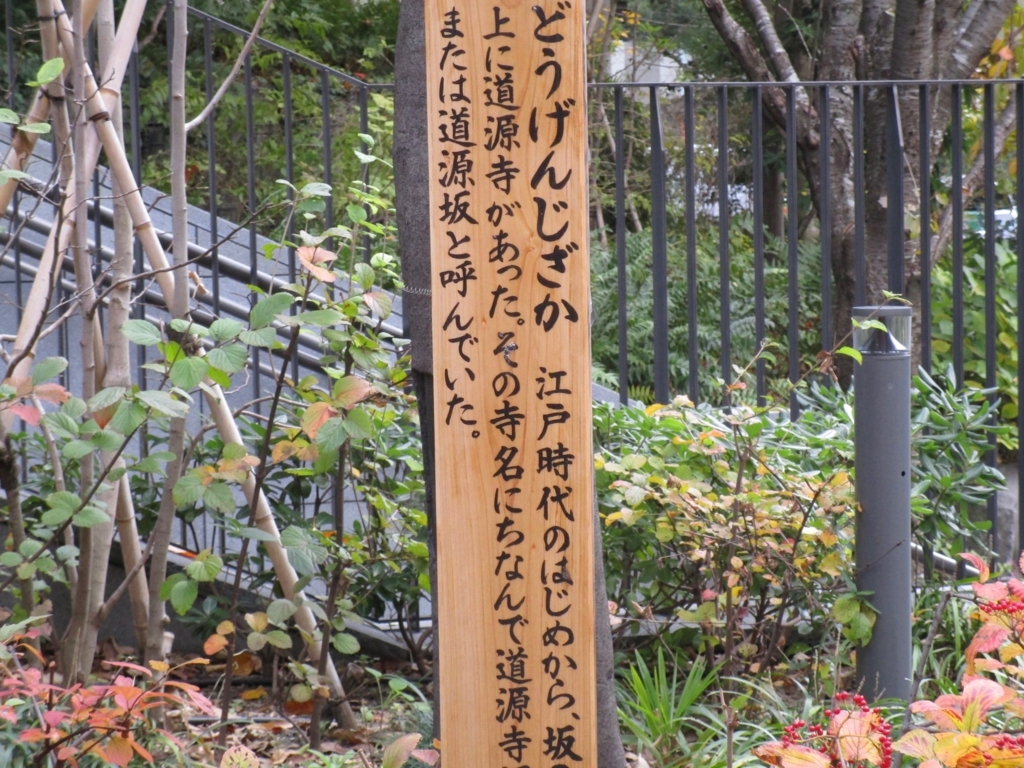 どうげんじざか 江戸時代のはじめから、坂
上に道源寺があった。その寺名にちなんで道源寺
または道源坂と呼んでいた。